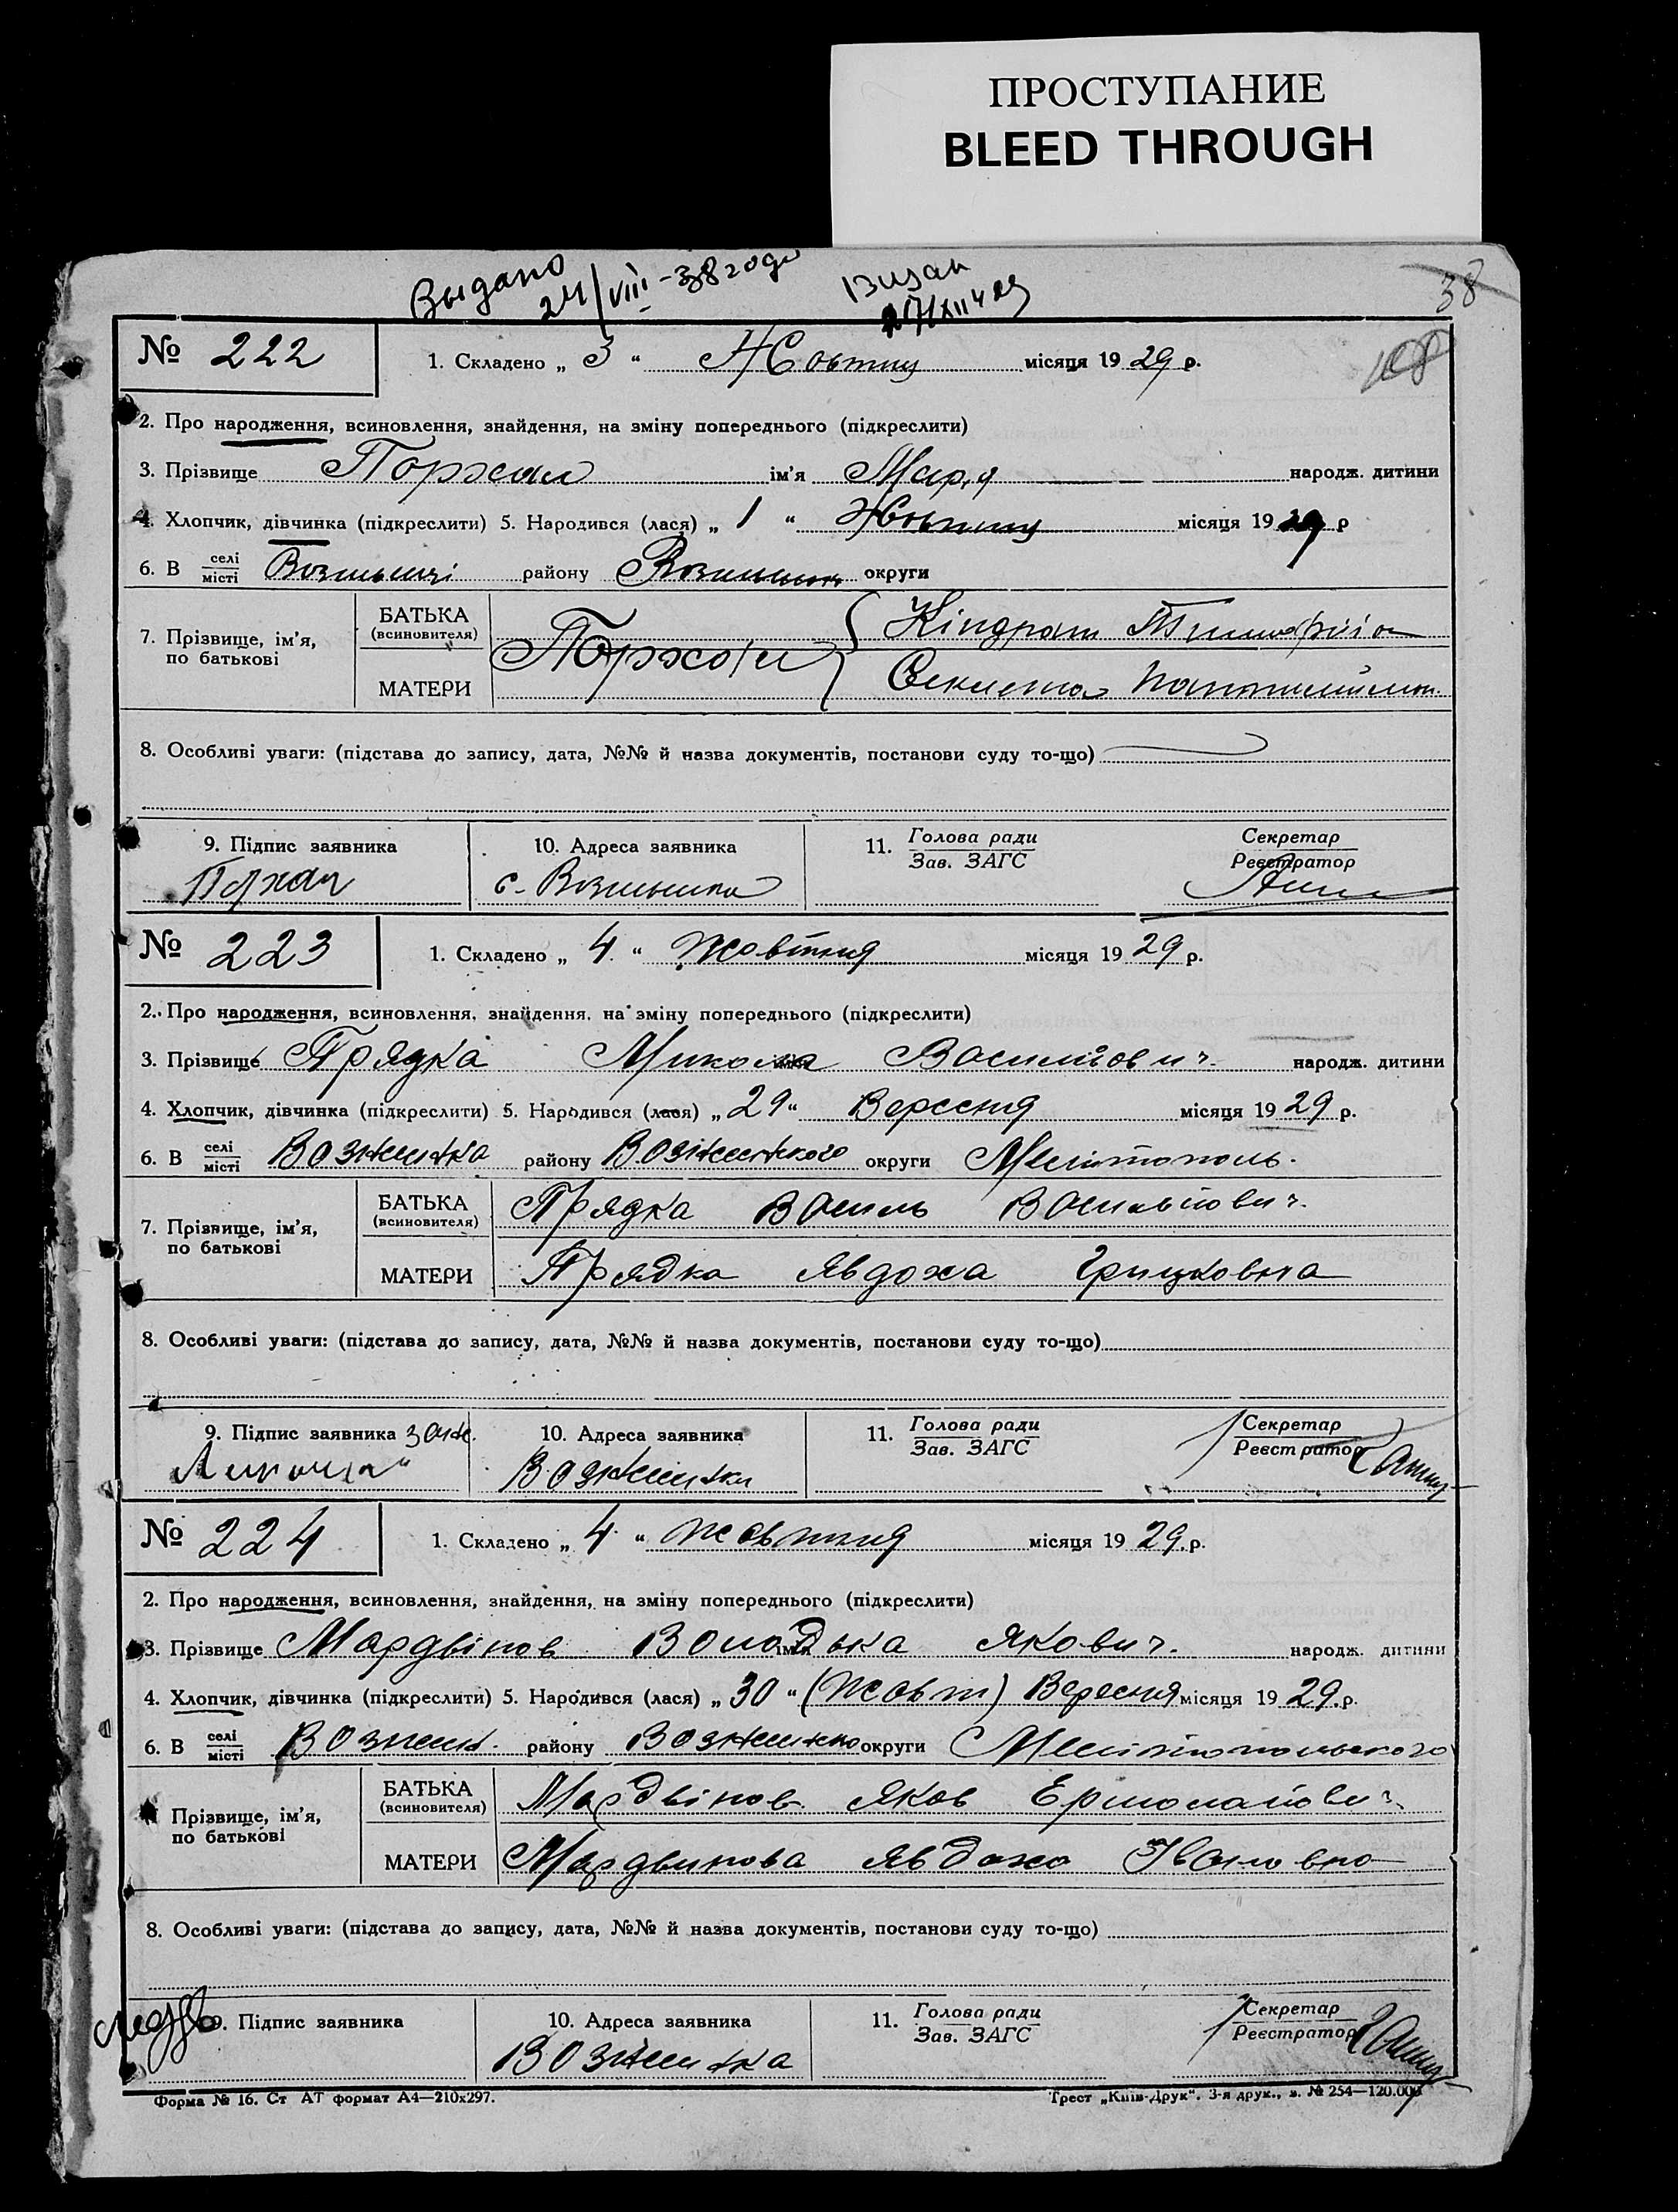 ПРОСТУПАНИЕ
BLEED THROUGH
Выдано
24/VIII-38 года
38
№ 222
1. Складено „ 3 “ Жовтня місяця 19 29 р.
2. Про народження, всиновлення, знайдення, на зміну попереднього (підкреслити)
3. Прізвище Поржан ім'я Марія народж. дитини
4. Хлопчик, дівчинка (підкреслити) 5. Народився (лася) „ 1 “ Жовтня місяця 19 29 р
6. В селі/місті району округи
7. Прізвище, ім'я, по батькові
БАТЬКА (всиновителя) Кіндрат
МАТЕРИ
8. Особливі уваги: (підстава до запису, дата, №№ й назва документів, постанови суду то-що)
9. Підпис заявника 10. Адреса заявника 11. Голова ради/Зав. ЗАГС Секретар/Реєстратор
№ 223
1. Складено „ 4 “ Жовтня місяця 19 29 р.
2. Про народження, всиновлення, знайдення, на зміну попереднього (підкреслити)
3. Прізвище Прядка Микола Васильович народж. дитини
4. Хлопчик, дівчинка (підкреслити) 5. Народився (лася) „ 29 “ Вересня місяця 19 29 р.
6. В селі/місті Вознесенка району Вознесенского округи Мелітополь.
7. Прізвище, ім'я, по батькові
БАТЬКА (всиновителя) Прядка Василь Васильович.
МАТЕРИ Прядка Явдоха Грицковна
8. Особливі уваги: (підстава до запису, дата, №№ й назва документів, постанови суду то-що)
9. Підпис заявника 10. Адреса заявника 11. Голова ради/Зав. ЗАГС Секретар/Реєстратор
Вознесенки
№ 224
1. Складено „ 4 “ Жовтня місяця 19 29 р.
2. Про народження, всиновлення, знайдення, на зміну попереднього (підкреслити)
3. Прізвище Мардвінов Володька Якович. народж. дитини
4. Хлопчик, дівчинка (підкреслити) 5. Народився (лася) „ 30 “ (Жовт) Вересня місяця 19 29 р.
6. В селі/місті Вознесен. району Вознесенско округи Мелітопольского
Прізвище, ім'я, по батькові
БАТЬКА (всиновителя) Мардвінов Яков Ермолайович
МАТЕРИ Мардвинова Явдоха Івановна
8. Особливі уваги: (підстава до запису, дата, №№ й назва документів, постанови суду то-що)
9. Підпис заявника 10. Адреса заявника 11. Голова ради/Зав. ЗАГС Секретар/Реєстратор
Вознесенка
Форма № 16. Ст АТ формат А4—210х297. Трест „Київ-Друк“. 3-я друк., з. № 254—120.000